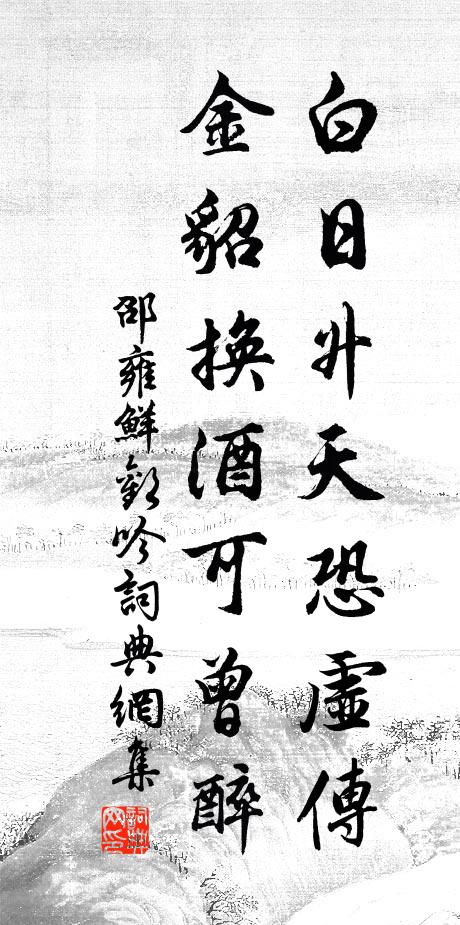 白日升天恐虛傳
金貂換酒可曾醉
邵雍鮮歡吟詞典網集